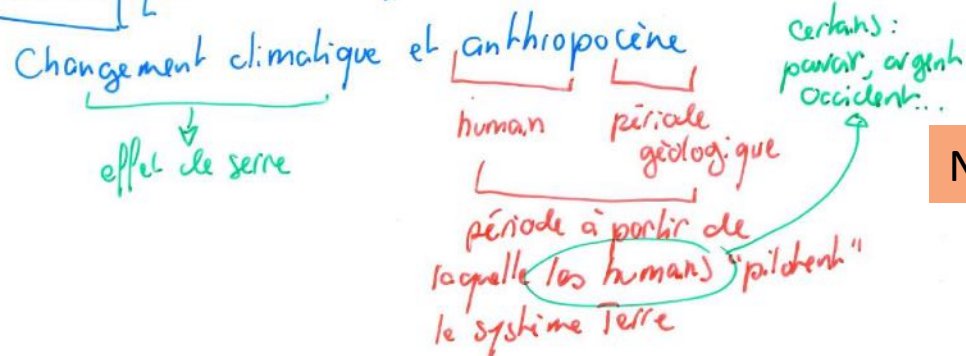 Changement climatique et anthropocène
effet de serre
humain
période
géologique
période à partir de
laquelle les humains "pilotent"
le système Terre
certains :
pouvoir, argent
Occident...
N